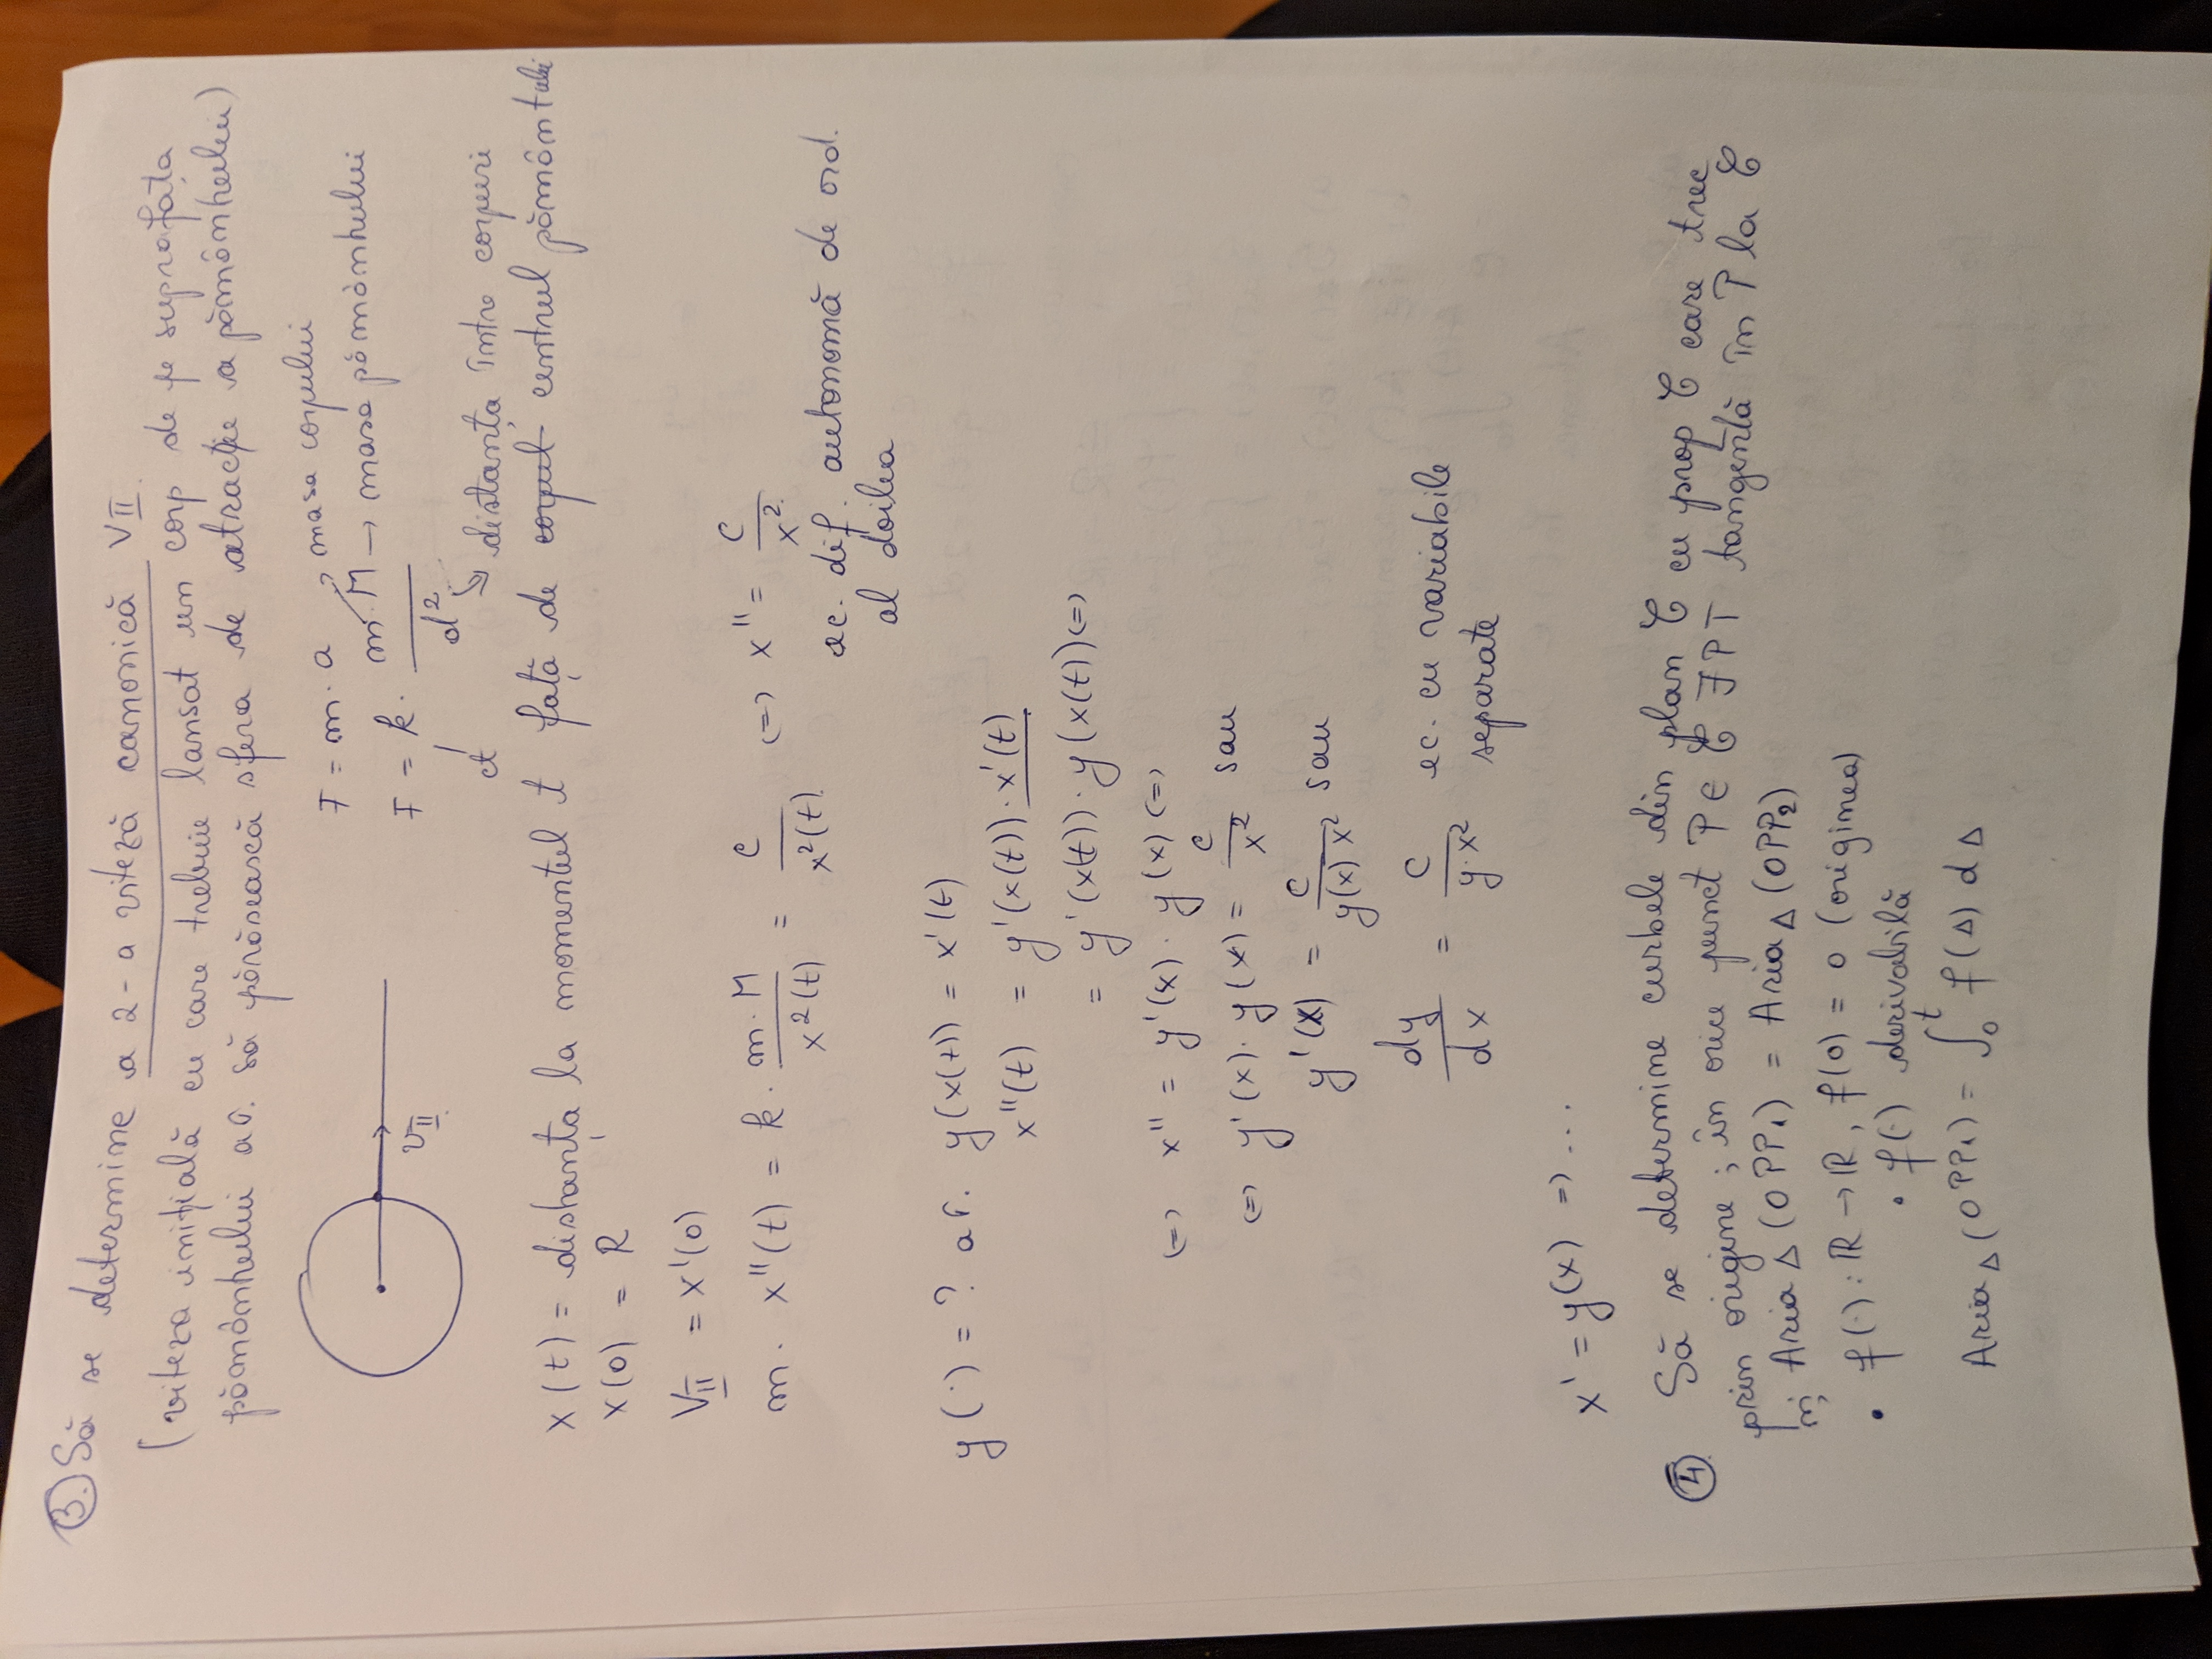 3. Să se determine a 2-a viteză canonică VII.
(viteza inițială cu care trebuie lansat un corp de pe suprafața
pământului aî. să părăsească sfera de atracție a pământului)
F = m · a → masa corpului
F = k · (m · M)/d² → masa pământului
vII
ct
distanța între corpuri
x(t) = distanța la momentul t față de corpul centrul pământului
x(0) = R
VII = x'(0)
m · x''(t) = k · (m · M)/(x²(t)) = c/(x²(t)) (=) x'' = c/x²
ec. dif. autonomă de ord.
al doilea
y(·) = ? aî. y(x(t)) = x'(t)
x''(t) = y'(x(t)) · x'(t)
= y'(x(t)) · y(x(t)) (=)
(=) x'' = y'(x) · y(x) (=)
(=) y'(x) · y(x) = c/x² sau
y'(x) = c/(y(x) x²) sau
dy/dx = c/(y·x²) ec. cu variabile
separate
x' = y(x) =) ...
4 Să se determine curbele din plan C cu prop C care trec
prin origine; în orice punct P ∈ C ∃ PT tangentă în P la C
și Aria Δ (OPP₁) = Aria Δ (OPP₂)
• f(·): ℝ → ℝ, f(0) = 0 (originea)
• f(·) derivabilă
Aria Δ (OPP₁) = ∫₀ᵗ f(s) ds